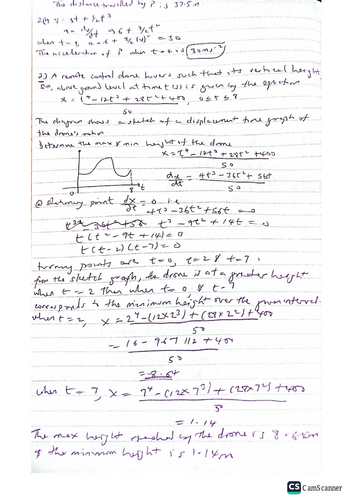 The distance travelled by P is 37.5m.
when t=
The acceleration of P when t = 6 is 30ms⁻²
2) A remote control drone hovers such that its vertical height,
above ground level at time t(s) is given by the equation
x = t⁴ - 12t³ + 28t² + 400, 0 ≤ t ≤ 8
50
The diagram shows a sketch of a displacement time graph of
the drone's motion
Determine the max & min height of the drone
x = t⁴ - 12t³ + 28t² + 400
50
dx/dt = 4t³ - 36t² + 56t
50
0 8 t
@ Turning point dx/dt = 0 i.e
4t³ - 36t² + 56t = 0
t³ - 9t² + 14t = 0
t(t² - 9t + 14) = 0
t(t-2)(t-7) = 0
turning points are t=0, t=2 & t=7.
from the sketch graph, the drone is at a greater height
when t = 2 than when t = 0 & t = 7
corresponds to the minimum height over the given interval
when t = 2, x = 2⁴ - (12×2³) + (28×2²) + 400
50
= 16 - 96 + 112 + 400
50
= 8.64
when t = 7, x = 7⁴ - (12×7³) + (28×7²) + 400
= 1.14
The max height reached by the drone is 8.64m
& the minimum height is 1.14m
CS CamScanner